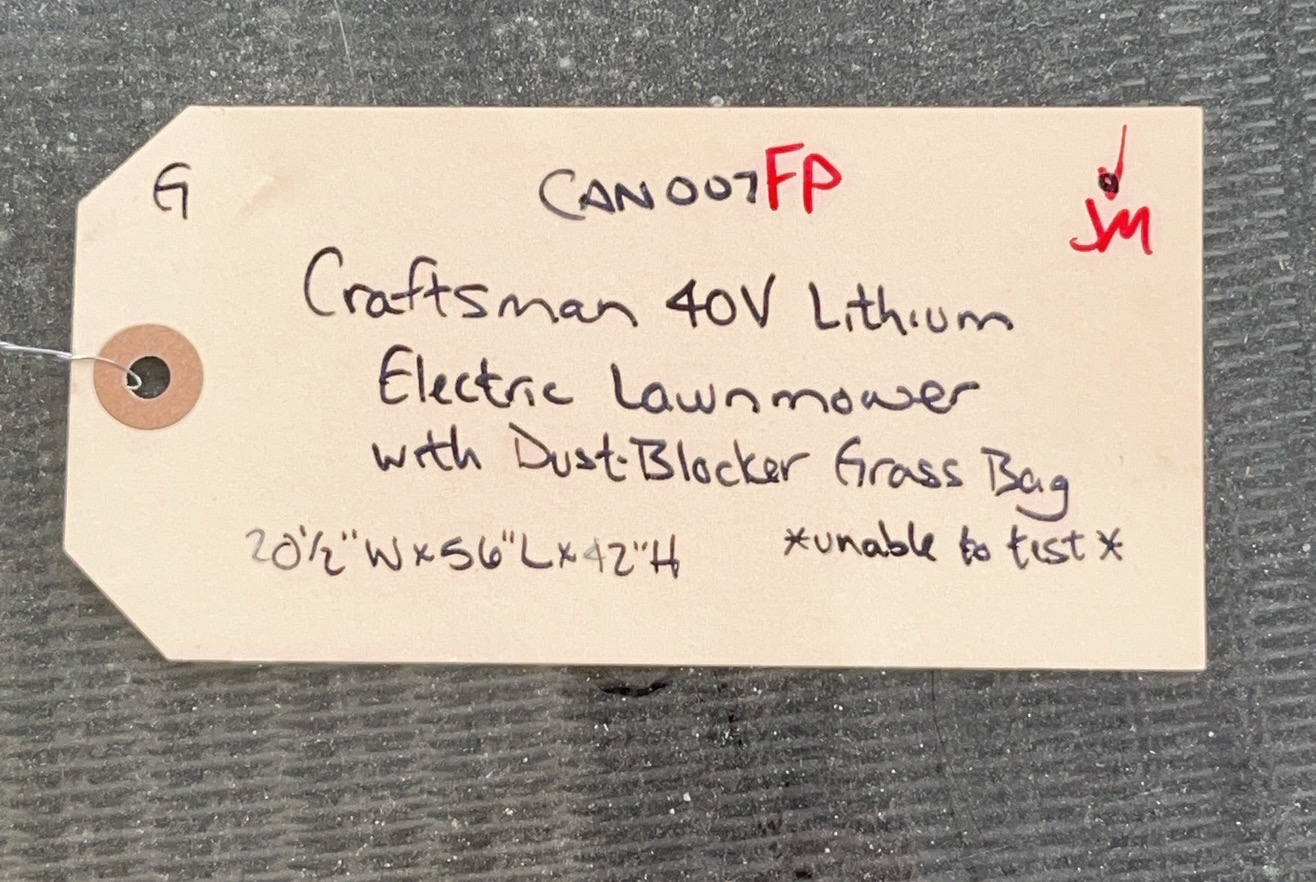 G CAN007FP
JM
Craftsman 40V Lithium
Electric Lawnmower
with Dust-Blocker Grass Bag
20½"W x 56"L x 42"H *unable to test*